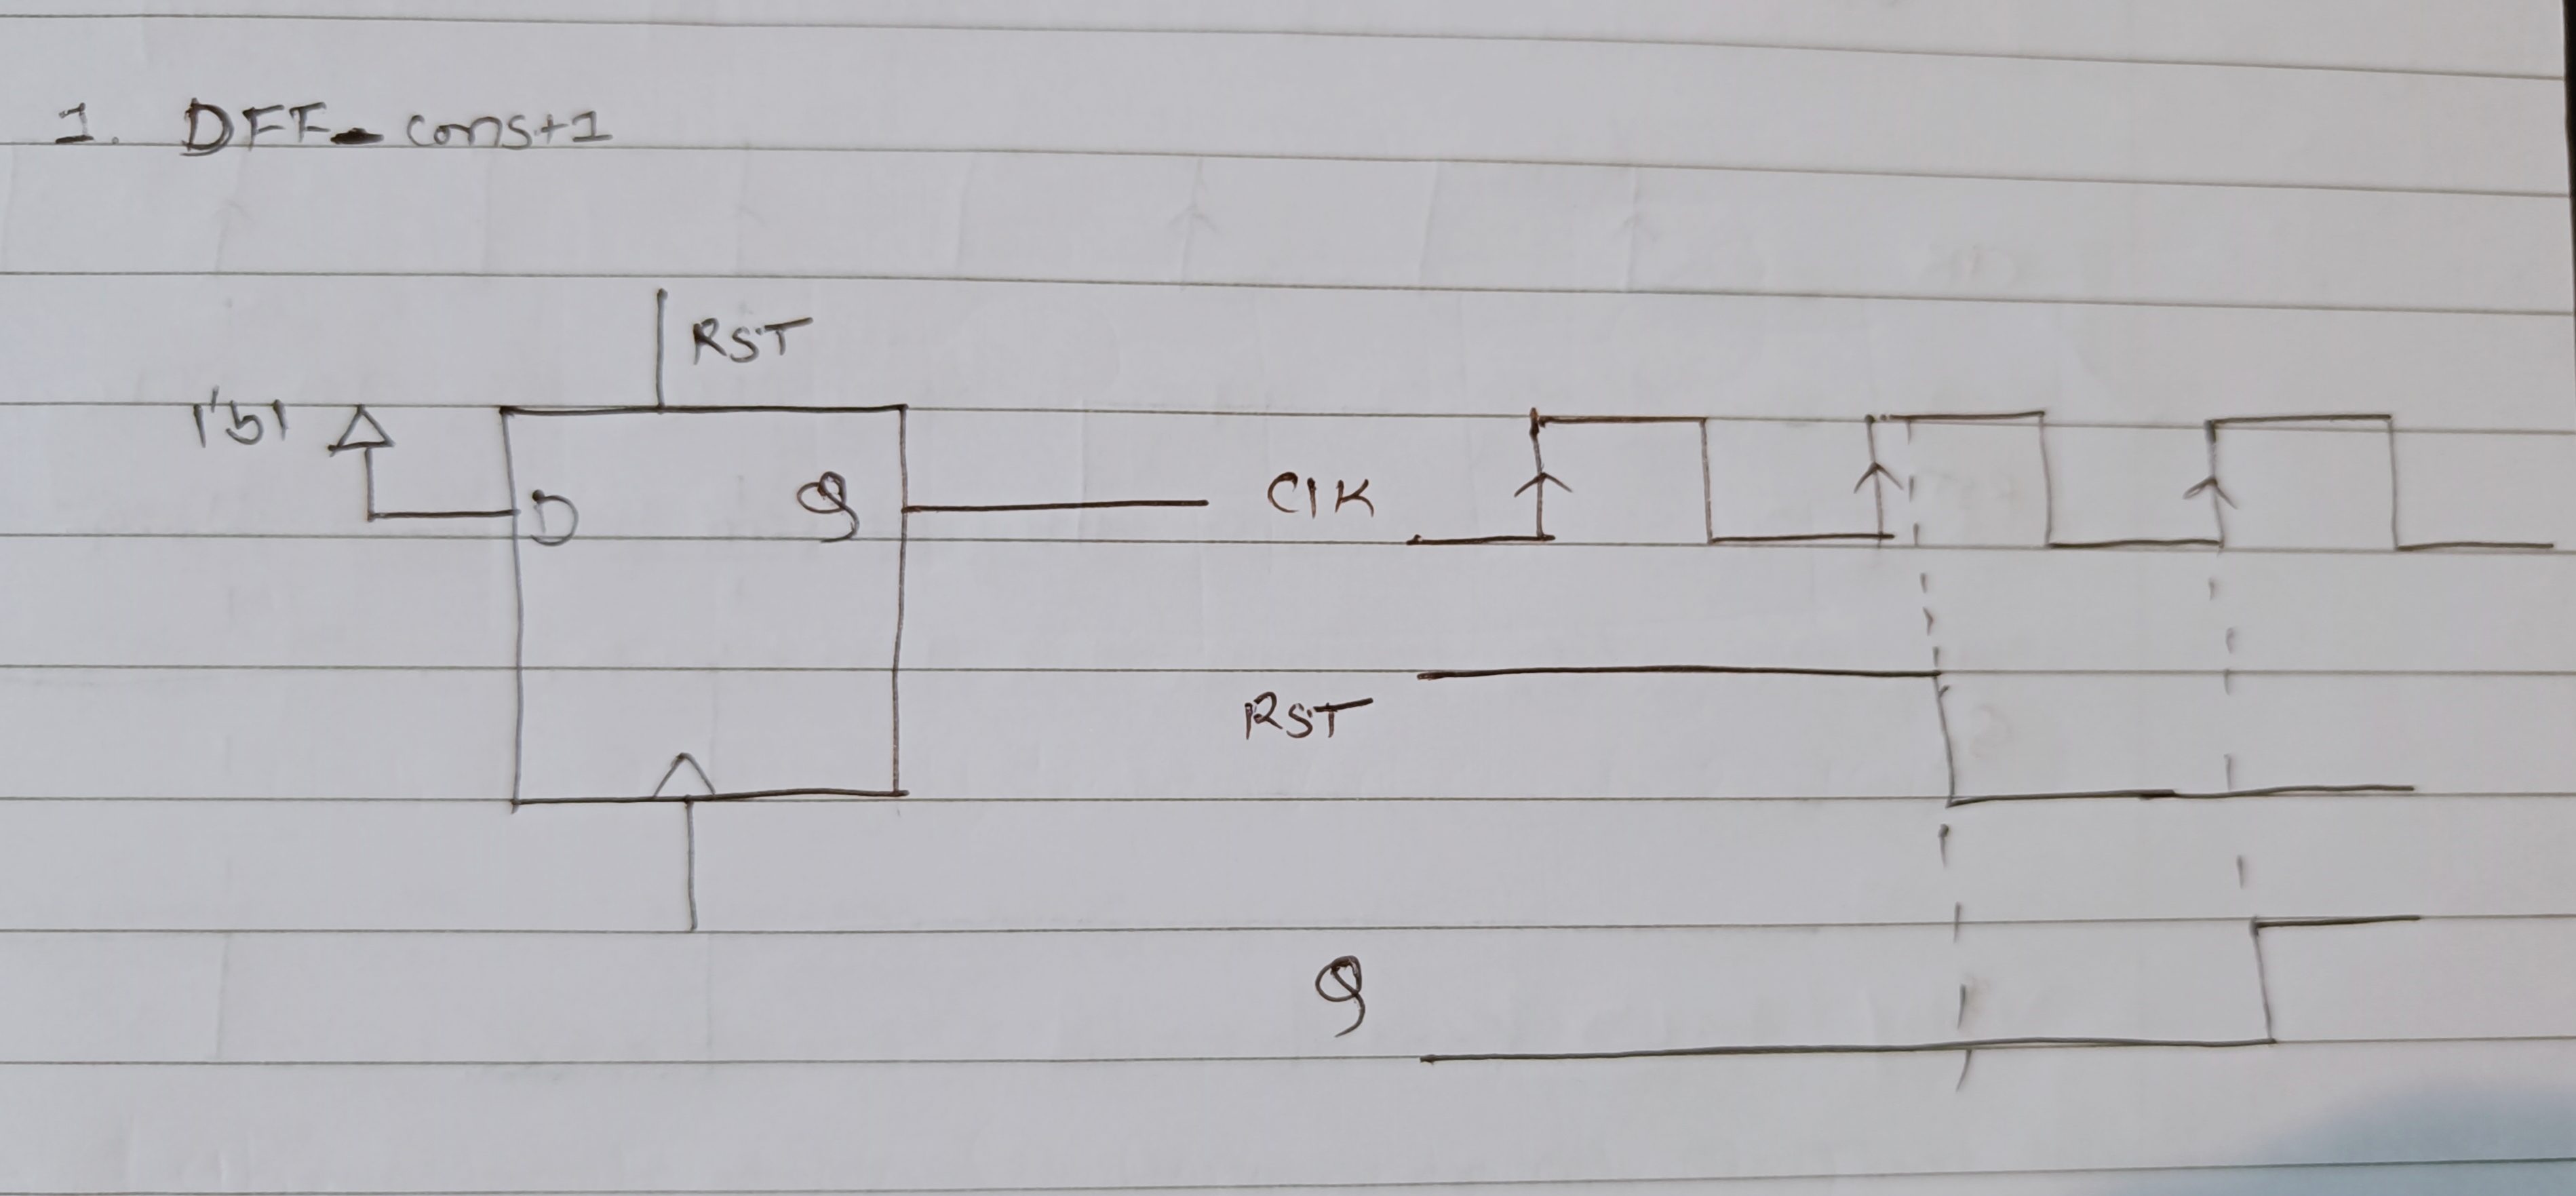 1. DFF_const1
RST
1'b1
D Q
CLK
RST
Q